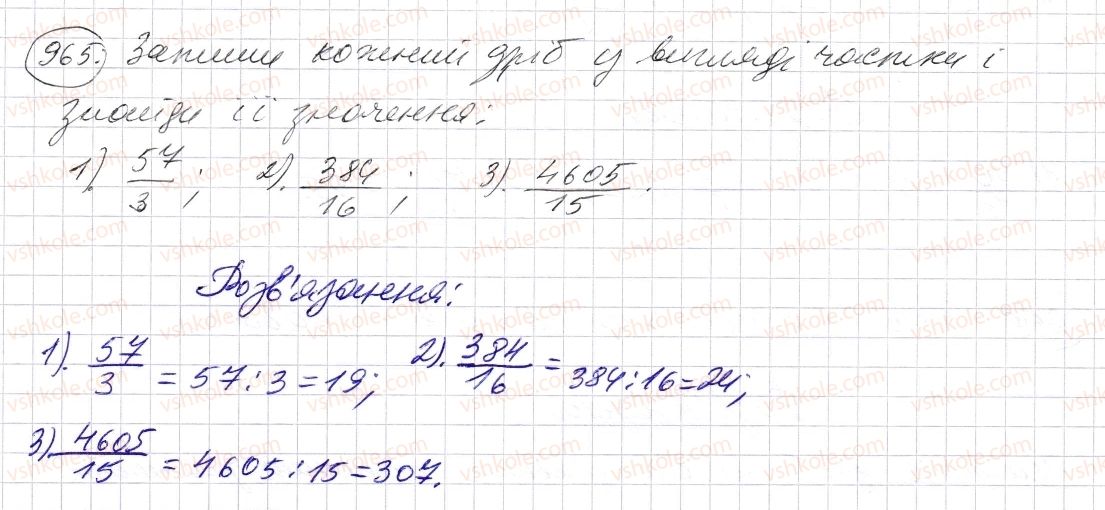 965. Запиши кожний дріб у вигляді частки і
знайди її значення:
1). 57/3 ; 2). 384/16 ; 3). 4605/15 .
Розв'язання:
1). 57/3 = 57 : 3 = 19; 2). 384/16 = 384 : 16 = 24;
3) 4605/15 = 4605 : 15 = 307.